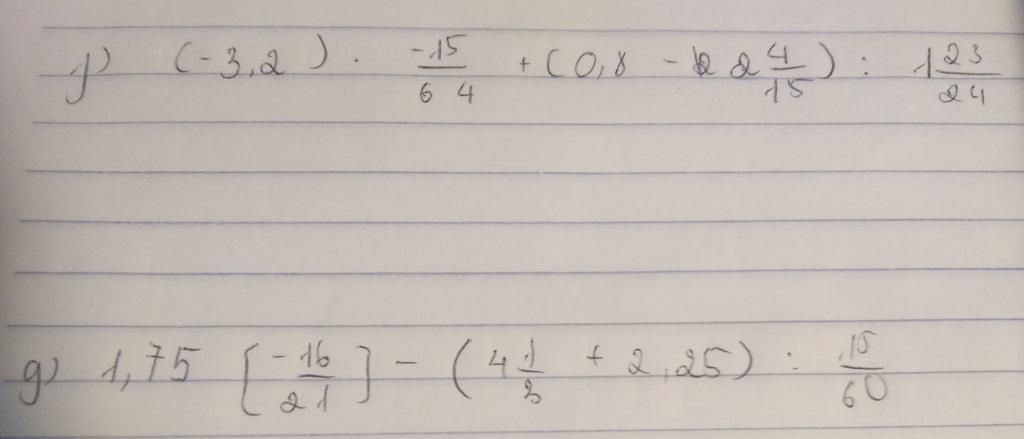 f) (-3,2) . -15/64 + (0,8 - 2 4/15) : 1 23/24
g) 1,75 [-16/21] - (4 1/3 + 2,25) : 15/60